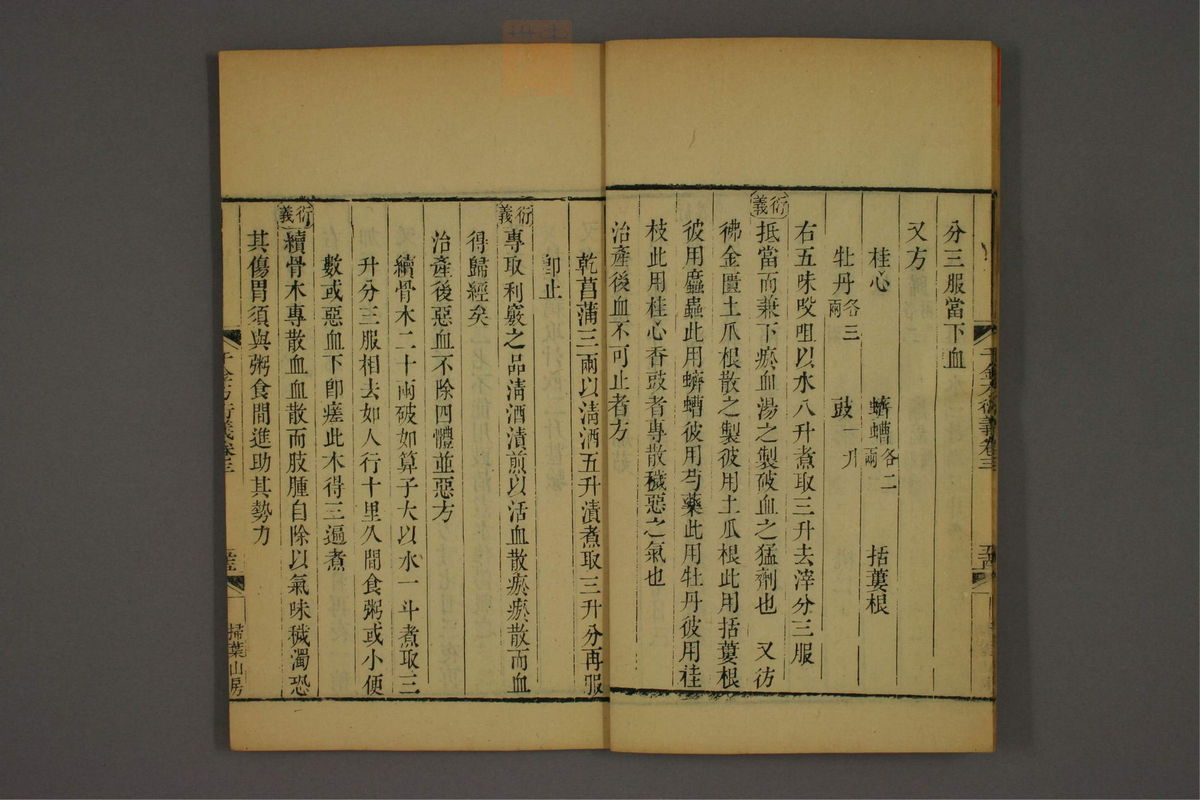 分三服當下血
又方
桂心　蠐螬各二兩　括蔞根
牡丹各三兩　豉一升
右五味㕮咀以水八升煮取三升去滓分三服
衍義抵當而兼下瘀血湯之製破血之猛劑也　又彷
彿金匱土瓜根散之製彼用土瓜根此用括蔞根
彼用䗪蟲此用蠐螬彼用芍藥此用牡丹彼用桂
枝此用桂心香豉者專散穢惡之氣也
治產後血不可止者方
乾菖蒲三兩以清酒五升漬煮取三升分再服
卽止
衍義專取利竅之品淸酒漬煎以活血散瘀瘀散而血
得歸經矣
治產後惡血不除四體並惡方
續骨木二十兩破如算子大以水一斗煮取三
升分三服相去如人行十里久間食粥或小便
數或惡血下卽瘥此木得三遍煮
衍義續骨木專散血血散而肢腫自除以氣味穢濁恐
其傷胃須與粥食間進助其勢力
千金方衍義卷三
掃葉山房